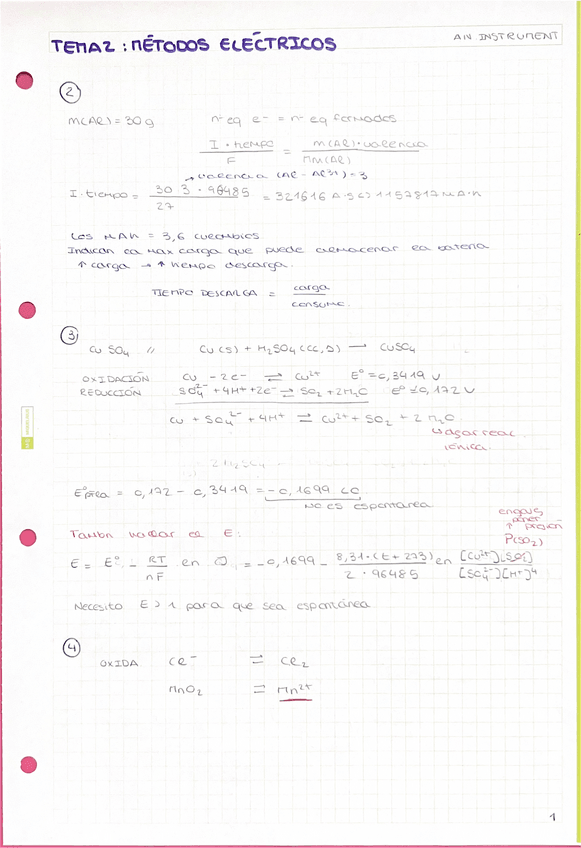 AN INSTRUMENT
TEMA2: MÉTODOS ELÉCTRICOS
2
m(Al) = 30g nº eq e⁻ = nº eq formados
I · tiempo / F = m(Al)·valencia / MM(Al)
→ valencia (Al - Al³⁺) = 3
I·tiempo = 30·3·96485 / 27 = 321616 A·s
Los mAh = 3,6 culombios
Indican la max carga que puede almacenar la batería
↑ carga → ↑ tiempo descarga.
TIEMPO DESCARGA = carga / consumo
3
CuSO₄ // Cu(s) + H₂SO₄(cc,Δ) → CuSO₄
OXIDACIÓN Cu - 2e⁻ ⇌ Cu²⁺ E° = 0,3419 V
REDUCCIÓN SO₄²⁻ + 4H⁺ + 2e⁻ ⇌ SO₂ + 2H₂O E° = 0,172 V
Cu + SO₄²⁻ + 4H⁺ ⇌ Cu²⁺ + SO₂ + 2H₂O
iónica.
E°pila = 0,172 - 0,3419 = -0,1699 < 0
NO ES espontánea
en gases
poner
presión
P(SO₂)
E = E° - RT/nF ln Q = -0,1699 - 8,31·(t + 273) / 2·96485 ln [Cu²⁺][SO₂] / [SO₄²⁻][H⁺]⁴
Necesito E > 1 para que sea espontánea
4
OXIDA Cl⁻ ⇌ Cl₂
MnO₂ ⇌ Mn²⁺
1